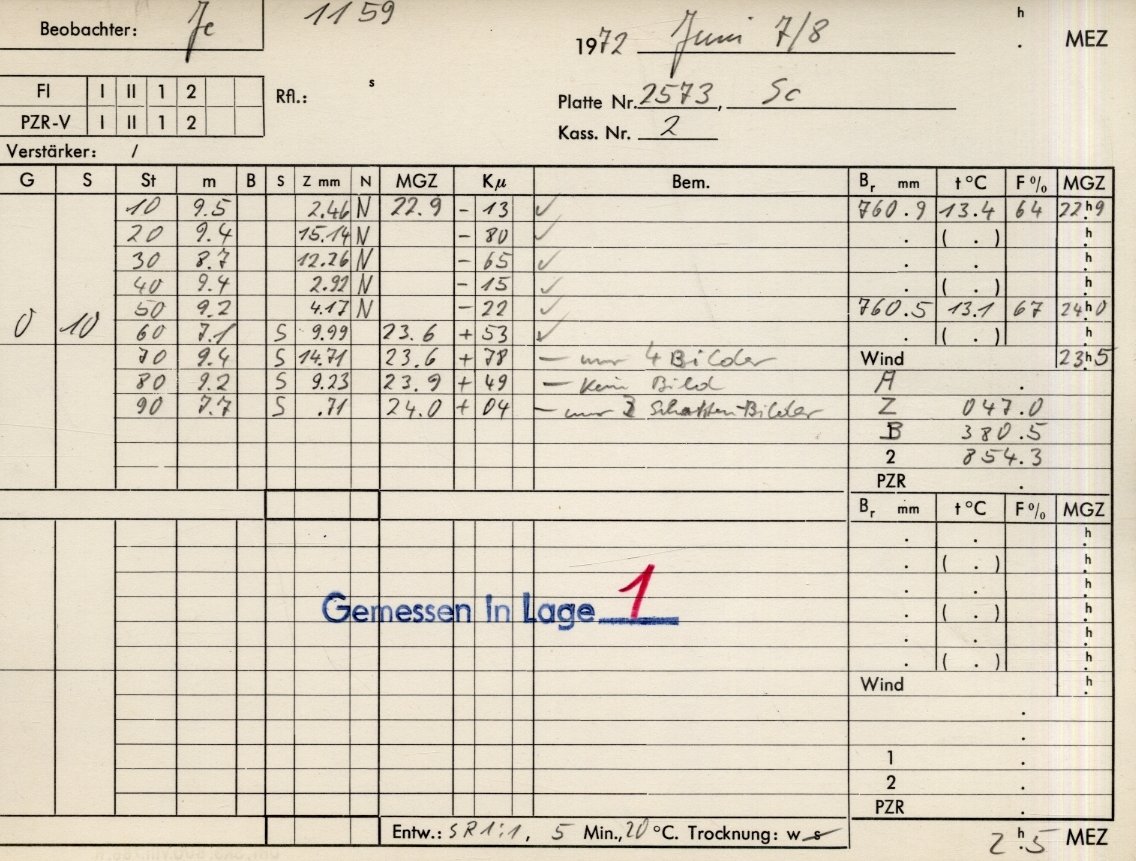 Beobachter: Je 1159
1972 Juni 7/8 h . MEZ
FI I II 1 2 Rfl.: s
Platte Nr. 2573, Sc
PZR-V I II 1 2
Kass. Nr. 2
Verstärker: /
G S St m B S Z mm N MGZ Kµ Bem. Br mm t °C F % MGZ
10 9.5 2.46 N 22.9 - 13 ✓ 760.9 13.4 64 22h9
20 9.4 15.14 N - 80 ✓ . ( . ) h.
30 8.7 12.26 N - 65 ✓ . . h.
40 9.4 2.92 N - 15 ✓ . ( . ) h.
50 9.2 4.17 N - 22 ✓ 760.5 13.1 67 24h0
0 10 60 7.1 S 9.99 23.6 + 53 ✓ . ( . ) h.
70 9.4 S 14.71 23.6 + 78 – nur 4 Bilder Wind 23h5
80 9.2 S 9.23 23.9 + 49 – kein Bild A .
90 7.7 S .71 24.0 + 04 – nur 2 Schatten-Bilder Z 047.0
B 380.5
2 854.3
PZR .
Br mm t °C F % MGZ
. . h.
. ( . ) h.
. . h.
. ( . ) h.
. . h.
. ( . ) h.
Gemessen in Lage 1
Wind h.
.
.
1
2
PZR .
Entw.: SR1:1, 5 Min., 20 °C. Trocknung: w s
2h.5 MEZ